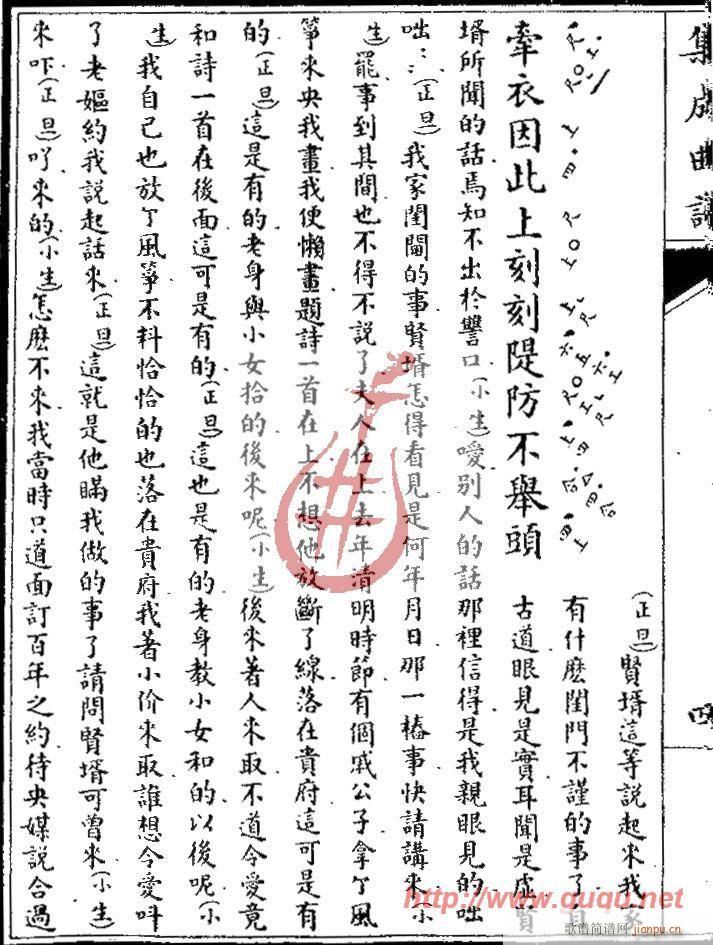 集成曲譜
四
牽衣因此上刻刻隄防不舉頭
(正旦)賢壻這等說起來我家
有什麽閨門不謹的事了自
古道眼見是實耳聞是虛賢
壻所聞的話焉知不出於讐口(小生)噯別人的話那裡信得是我親眼見的咄
咄(正旦)我家閨閫的事賢壻怎得看見是何年月日那一樁事快請講來(小
生)罷事到其間也不得不說了夫人在上去年清明時節有個戚公子拿了風
箏來央我畫我便懶畫題詩一首在上不想他放斷了線落在貴府這可是有
的(正旦)這是有的老身與小女拾的後來呢(小生)後來著人來取不道令愛竟
和詩一首在後面這可是有的(正旦)這也是有的老身教小女和的以後呢(小
生)我自己也放了風箏不料恰恰的也落在貴府我著小价來取誰想令愛呌
了老嫗約我說起話來(正旦)這就是他瞞我做的事了請問賢壻可曾來(小生)
來吓(正旦)吖來的(小生)怎麽不來我當時只道面訂百年之約待央媒說合過
http://www.ququ.net
歌谱简谱网
jianpu.cn